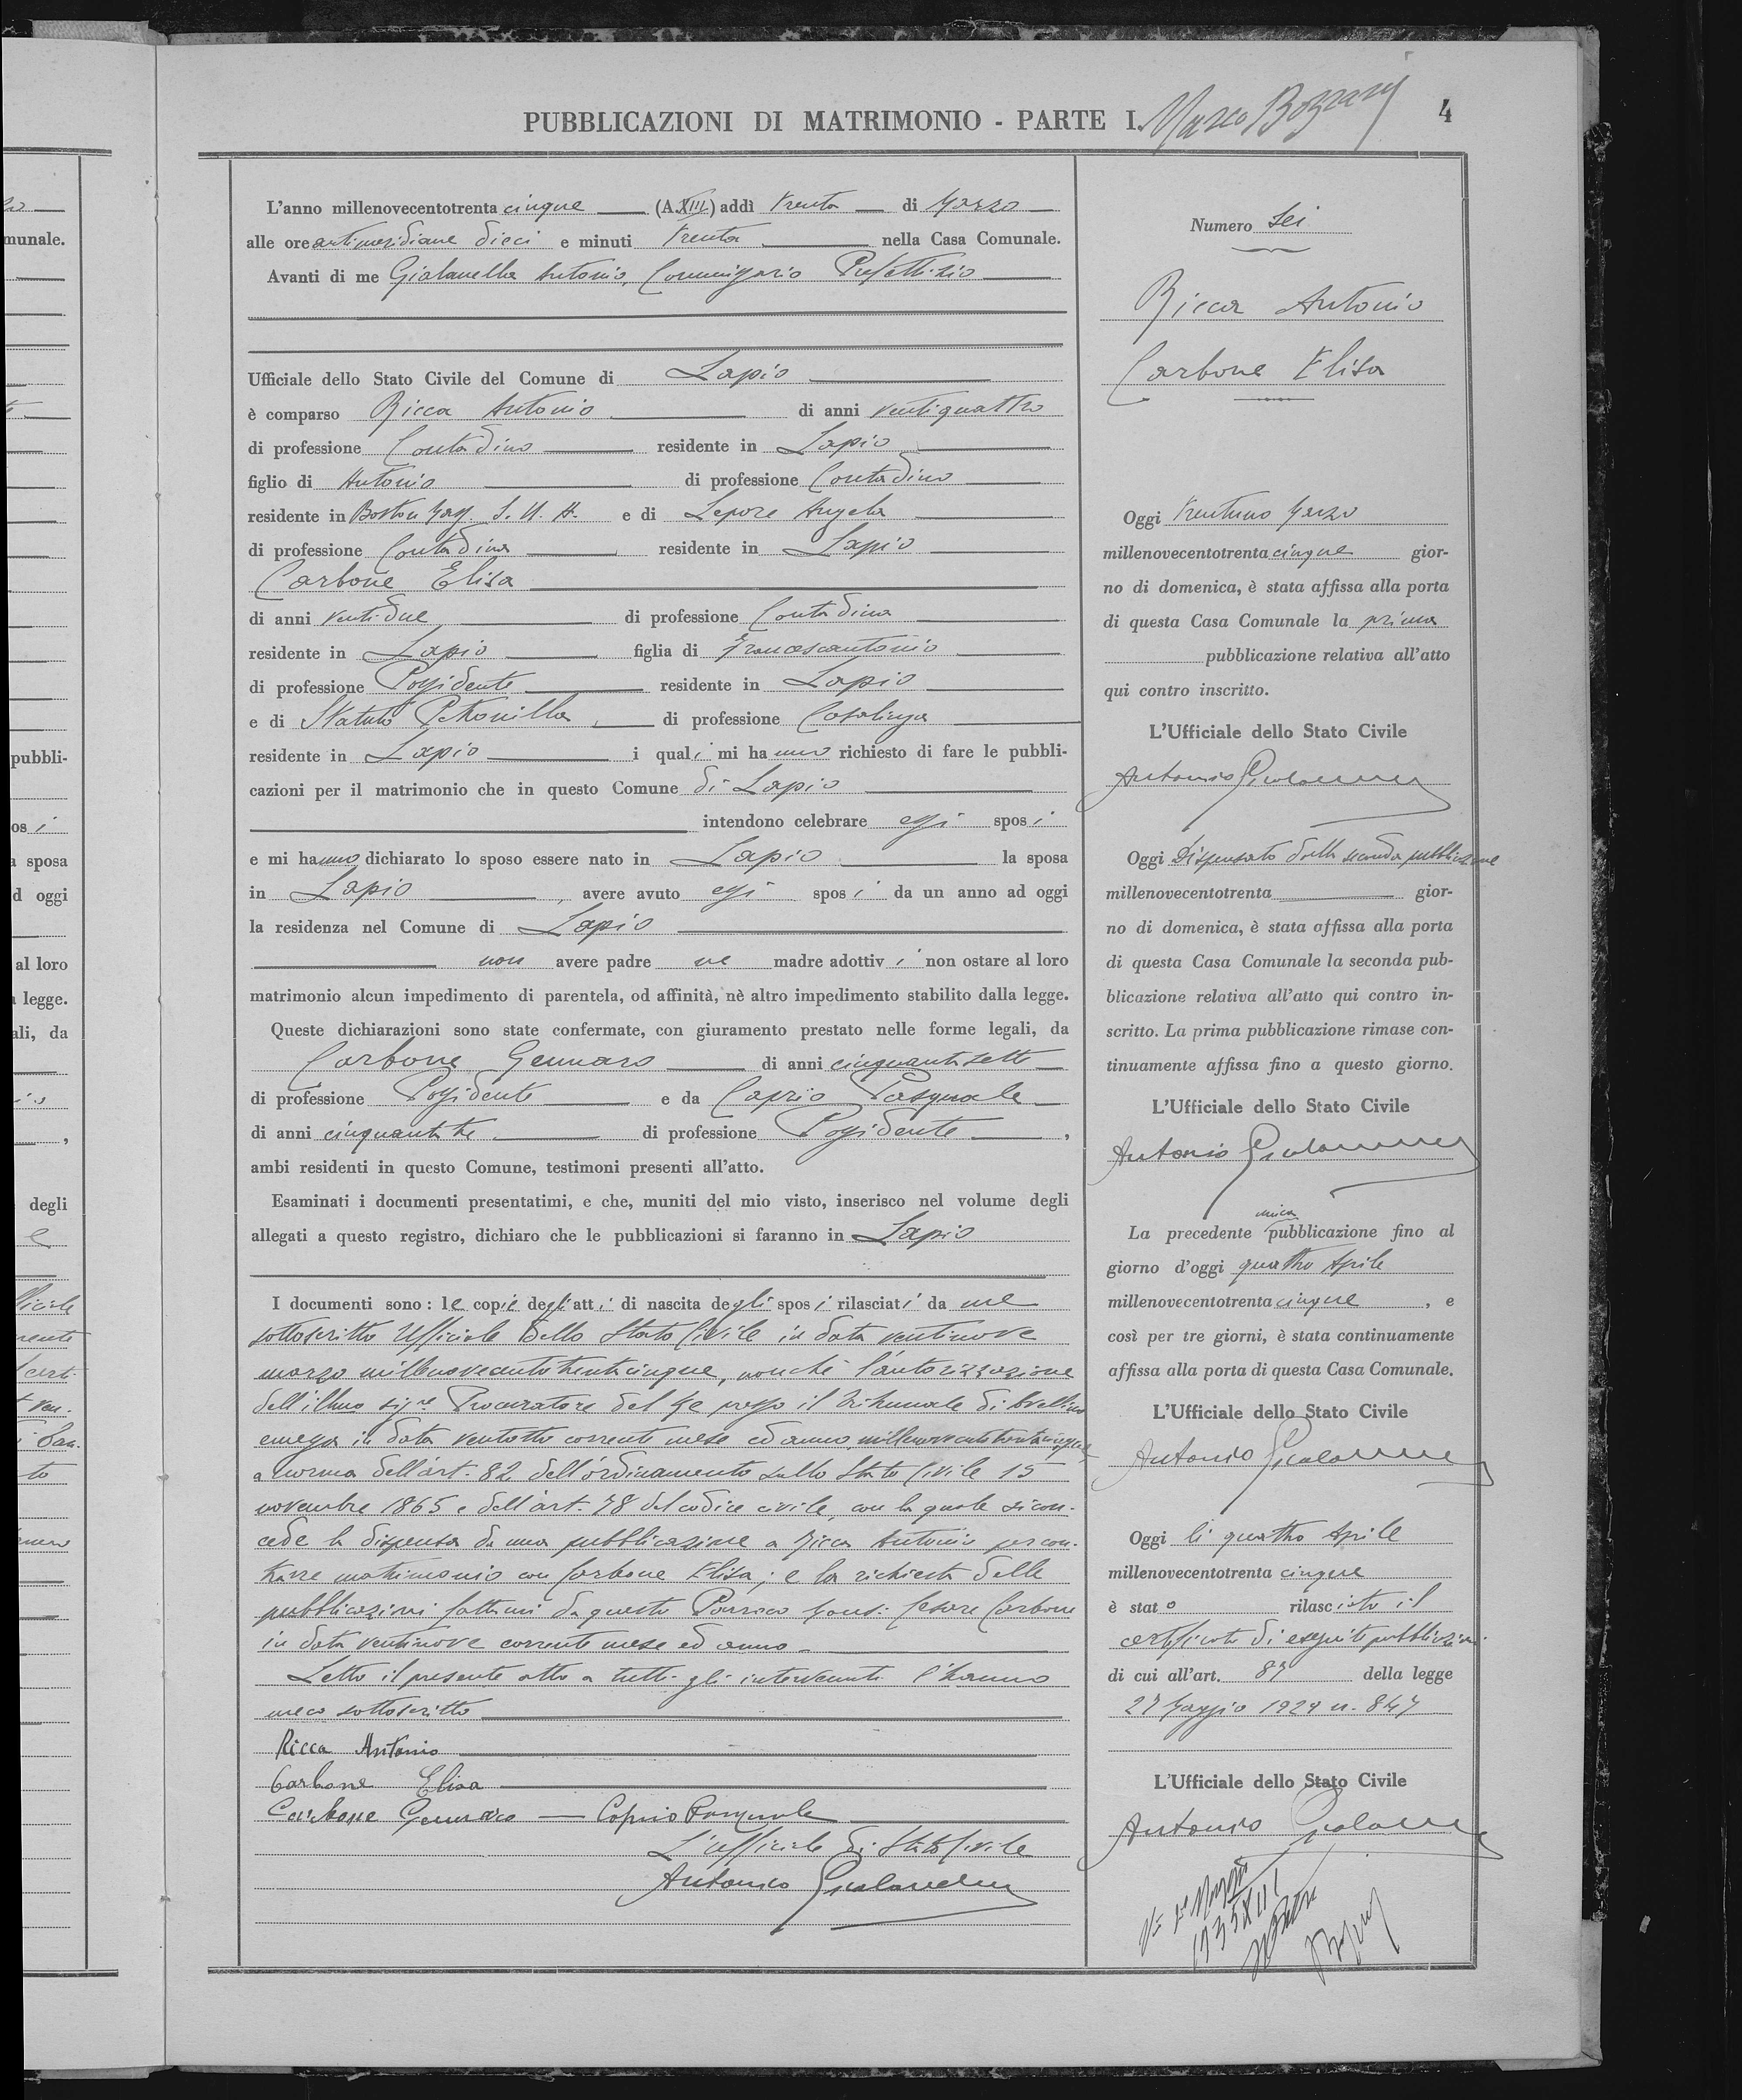 PUBBLICAZIONI DI MATRIMONIO - PARTE I.
4
L'anno millenovecentotrenta cinque (A. XIII) addì trenta di Marzo
alle ore antimeridiane dieci e minuti trenta nella Casa Comunale.
Avanti di me Antonio, Commissario Prefettizio
Ufficiale dello Stato Civile del Comune di Lapio
è comparso Ricca Antonio di anni ventiquattro
di professione Contadino residente in Lapio
figlio di Antonio di professione Contadino
residente in Boston Mass. S. U. A. e di Lepore Angela
di professione Contadina residente in Lapio
Carbone Elisa
di anni ventidue di professione Contadina
residente in Lapio figlia di Francescantonio
di professione Possidente residente in Lapio
e di Statuto Petronilla di professione Casalinga
residente in Lapio i quali mi hanno richiesto di fare le pubbli-
cazioni per il matrimonio che in questo Comune di Lapio
intendono celebrare essi sposi
e mi hanno dichiarato lo sposo essere nato in Lapio la sposa
in Lapio, avere avuto essi sposi da un anno ad oggi
la residenza nel Comune di Lapio
non avere padre ne madre adottivi non ostare al loro
matrimonio alcun impedimento di parentela, od affinità, nè altro impedimento stabilito dalla legge.
Queste dichiarazioni sono state confermate, con giuramento prestato nelle forme legali, da
Carbone Gennaro di anni cinquantasette
di professione Possidente e da Caprio Pasquale
di anni cinquantatre di professione Possidente,
ambi residenti in questo Comune, testimoni presenti all'atto.
Esaminati i documenti presentatimi, e che, muniti del mio visto, inserisco nel volume degli
allegati a questo registro, dichiaro che le pubblicazioni si faranno in Lapio
I documenti sono: le copie degli atti di nascita degli sposi rilasciati da me
sottoscritto Ufficiale dello Stato Civile in data ventinove
marzo millenovecentotrentacinque, nonchè l'autorizzazione
dell'illmo sigre Procuratore del Re presso il tribunale di Avellino
emessa in data ventotto corrente mese ed anno millenovecentotrentacinque
a norma dell'art. 82 dell'ordinamento sullo Stato Civile 15
novembre 1865 e dell'art. 78 del codice civile, con la quale si con-
cede la dispensa da una pubblicazione a Ricca Antonio per con-
trarre matrimonio con Carbone Elisa; e la richiesta delle
pubblicazioni fattami da questo Parroco Mons: Cesare Carbone
in data ventinove corrente mese ed anno
Letto il presente atto a tutti gli intervenuti l'hanno
meco sottoscritto
Ricca Antonio
Carbone Elisa
Carbone Gennaro — Caprio Pasquale
L'ufficiale di Stato Civile
Antonio
Numero sei
Ricca Antonio
Carbone Elisa
Oggi trentuno Marzo
millenovecentotrenta cinque gior-
no di domenica, è stata affissa alla porta
di questa Casa Comunale la prima
pubblicazione relativa all'atto
qui contro inscritto.
L'Ufficiale dello Stato Civile
Antonio
Oggi Dispensato dalla seconda pubblicazione
millenovecentotrenta gior-
no di domenica, è stata affissa alla porta
di questa Casa Comunale la seconda pub-
blicazione relativa all'atto qui contro in-
scritto. La prima pubblicazione rimase con-
tinuamente affissa fino a questo giorno.
L'Ufficiale dello Stato Civile
Antonio
unica
La precedente pubblicazione fino al
giorno d'oggi quattro Aprile
millenovecentotrenta cinque, e
così per tre giorni, è stata continuamente
affissa alla porta di questa Casa Comunale.
L'Ufficiale dello Stato Civile
Antonio
Oggi li quattro Aprile
millenovecentotrenta cinque
è stato rilasciato il
certificato di eseguite pubblicazioni
di cui all'art. della legge
27 Maggio 1929 n. 847
L'Ufficiale dello Stato Civile
Antonio
munale.
pubbli-
osi
a sposa
d oggi
al loro
a legge.
ali, da
degli